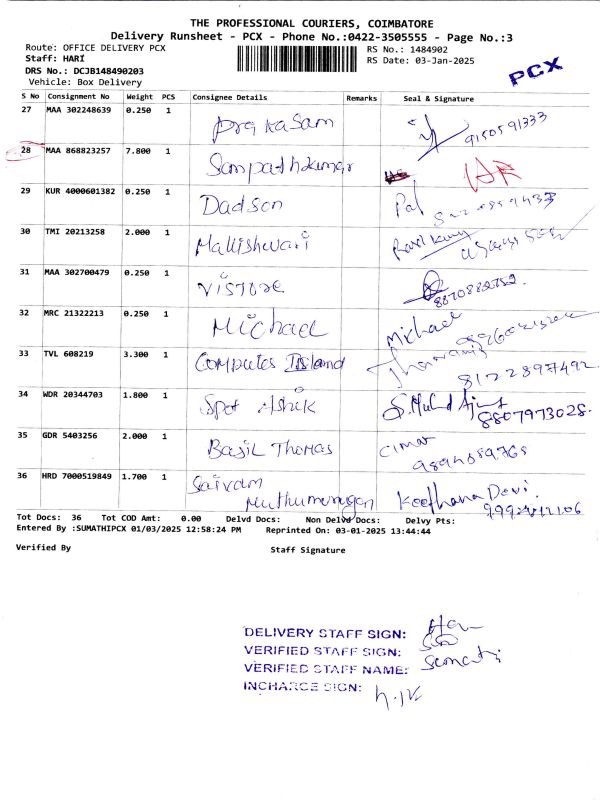 THE PROFESSIONAL COURIERS, COIMBATORE
Delivery Runsheet - PCX - Phone No.:0422-3505555 - Page No.:3
Route: OFFICE DELIVERY PCX RS No.: 1484902
Staff: HARI RS Date: 03-Jan-2025
DRS No.: DCJB148490203
Vehicle: Box Delivery
PCX
S No Consignment No Weight PCS Consignee Details Remarks Seal & Signature
27 MAA 302248639 0.250 1 Prakasam 9150591333
28 MAA 868823257 7.800 1 Sampathkumar
29 KUR 4000601382 0.250 1 Dadson Pal
30 TMI 20213258 2.000 1 Mallishwari
31 MAA 302700479 0.250 1 Vistore 8870882752
32 MRC 21322213 0.250 1 Michael Michael
33 TVL 608219 3.300 1 Computes Island 8122897492
34 WDR 20344703 1.800 1 Spot Ashik 8807973028
35 GDR 5403256 2.000 1 Basil Thomas
36 HRD 7000519849 1.700 1 Sairam Muthumurugan Keerthana Devi.
Tot Docs: 36 Tot COD Amt: 0.00 Delvd Docs: Non Delvd Docs: Delvy Pts:
Entered By :SUMATHIPCX 01/03/2025 12:58:24 PM Reprinted On: 03-01-2025 13:44:44
Verified By Staff Signature
DELIVERY STAFF SIGN:
VERIFIED STAFF SIGN:
VERIFIED STAFF NAME:
INCHARGE SIGN: